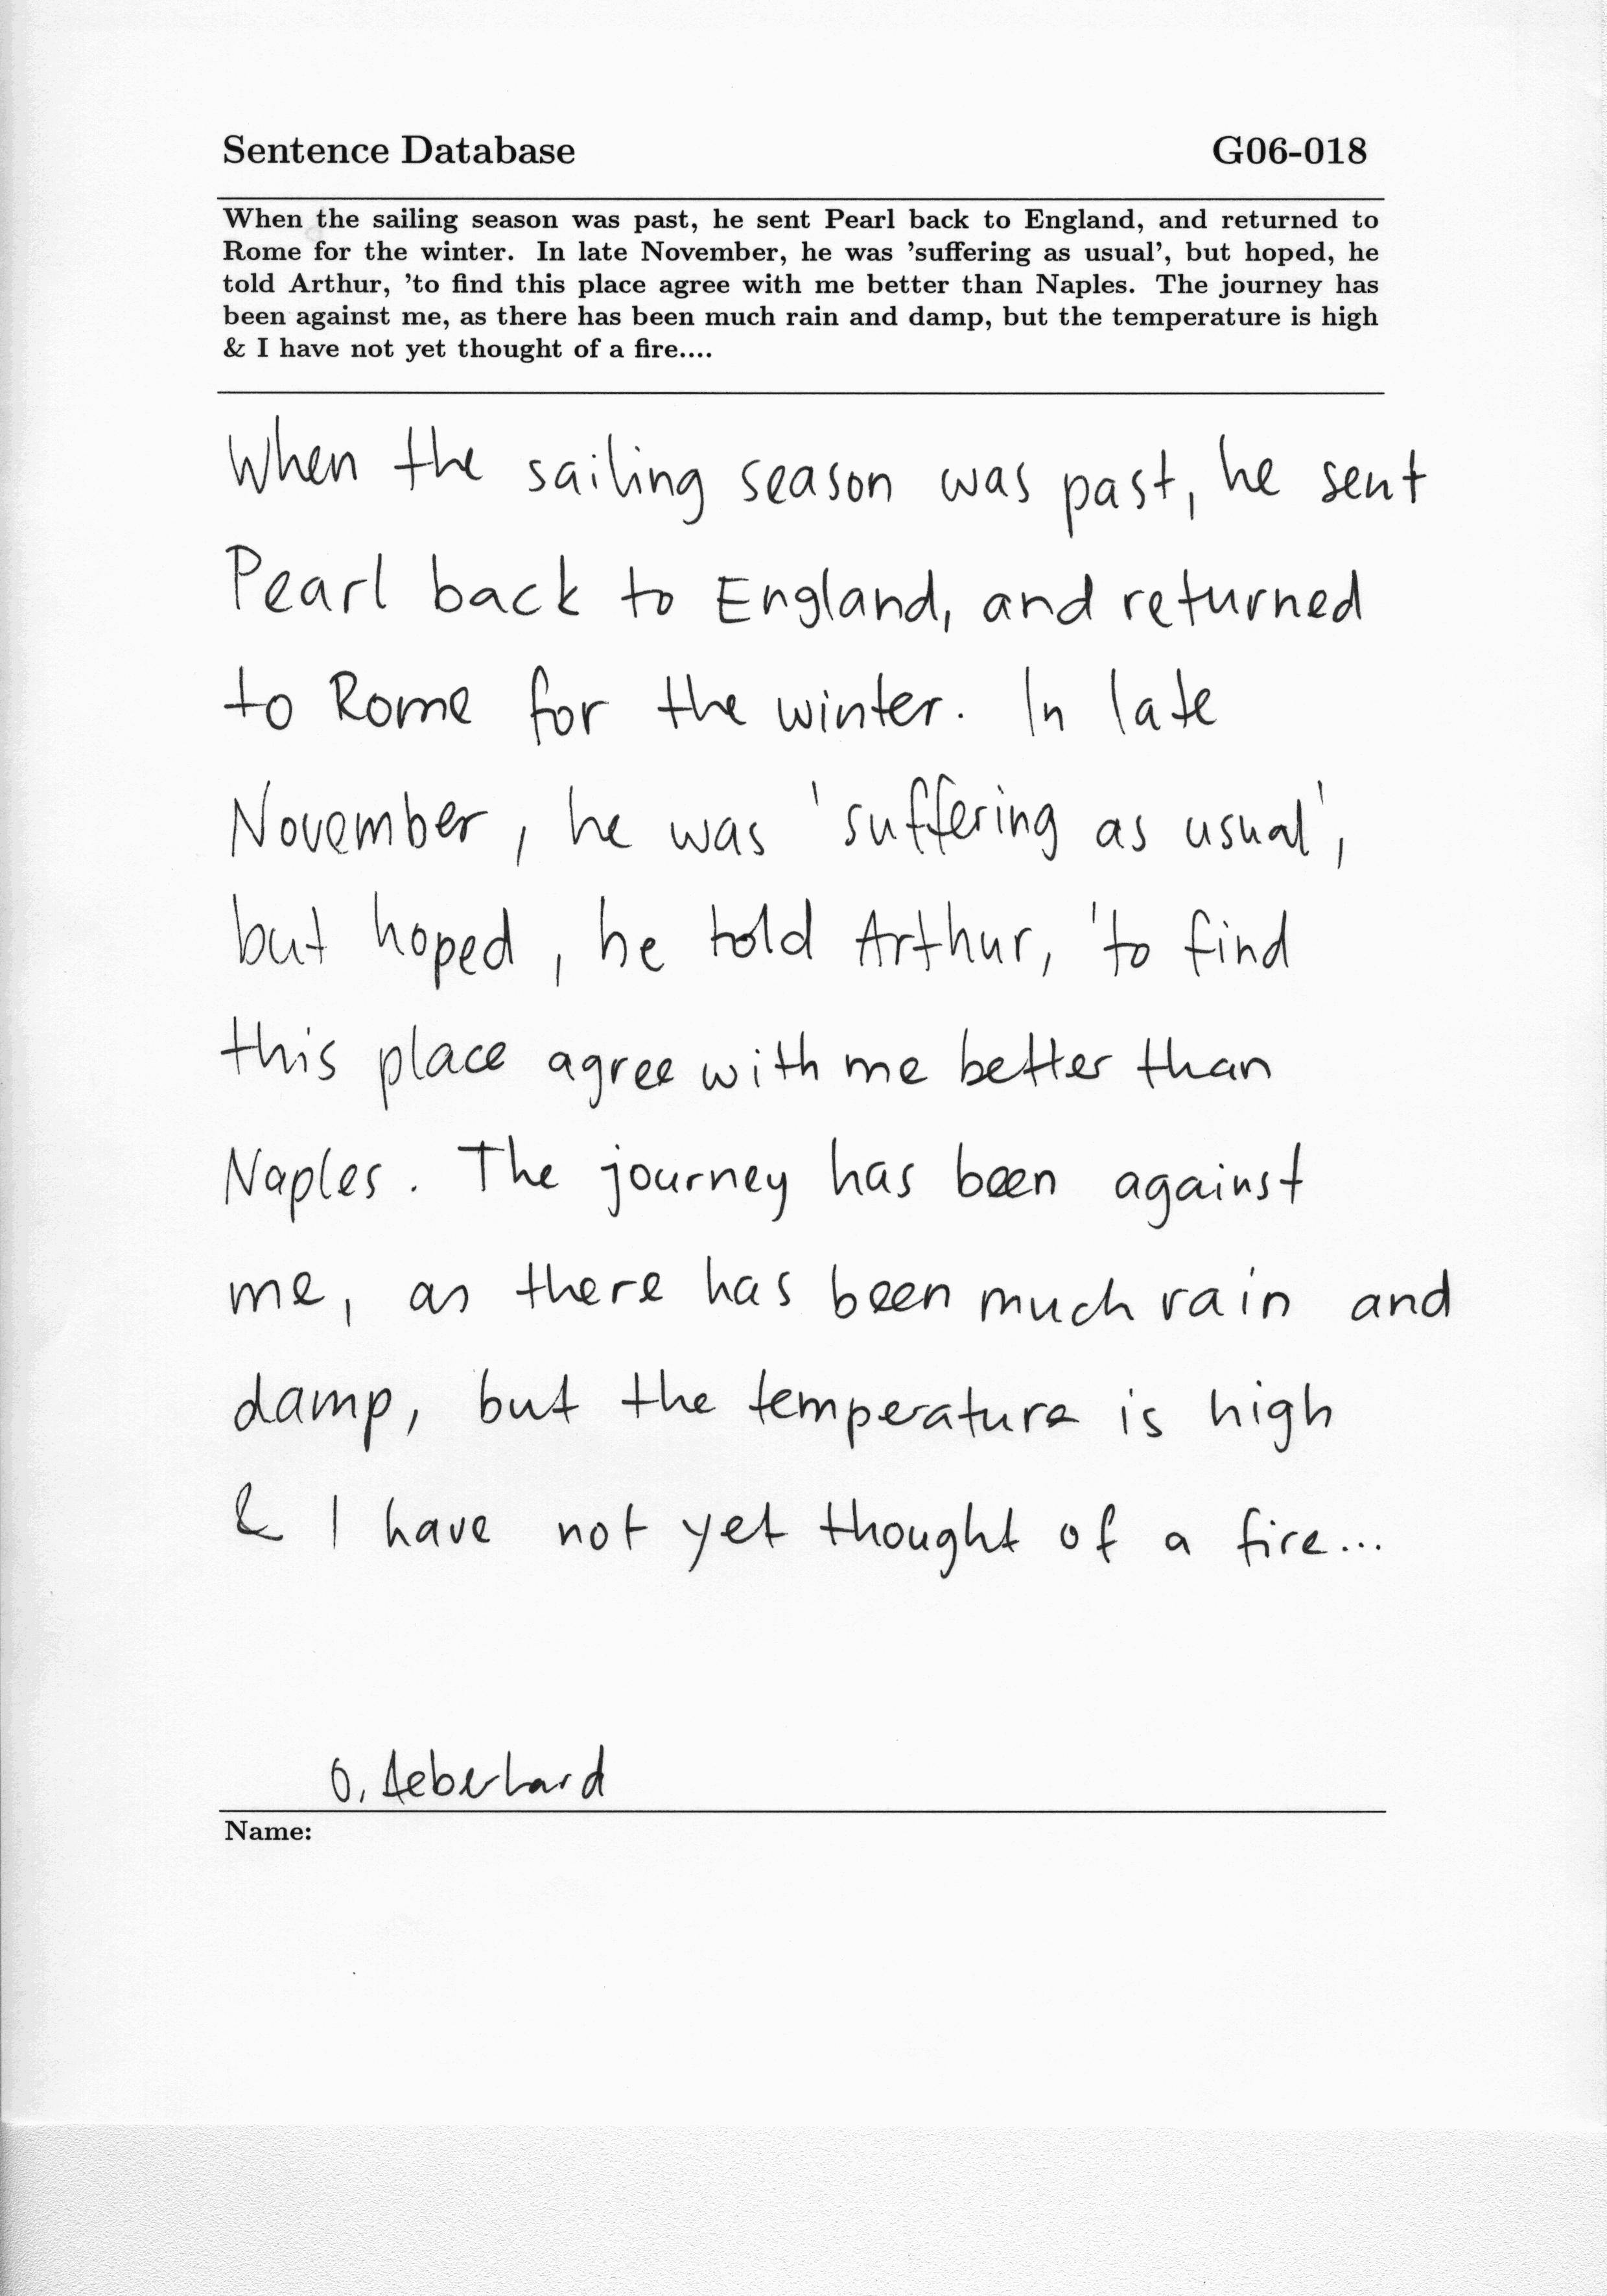 Sentence Database G06-018
When the sailing season was past, he sent Pearl back to England, and returned to
Rome for the winter. In late November, he was 'suffering as usual', but hoped, he
told Arthur, 'to find this place agree with me better than Naples. The journey has
been against me, as there has been much rain and damp, but the temperature is high
& I have not yet thought of a fire....
When the sailing season was past, he sent
Pearl back to England, and returned
to Rome for the winter. In late
November, he was 'suffering as usual',
but hoped, he told Arthur, 'to find
this place agree with me better than
Naples. The journey has been against
me, as there has been much rain and
damp, but the temperature is high
& I have not yet thought of a fire...
O. Aeberhard
Name: